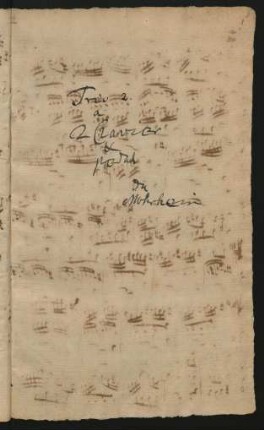 Trio a
a
2 Clavier
&
pedal
da
Mohrheim